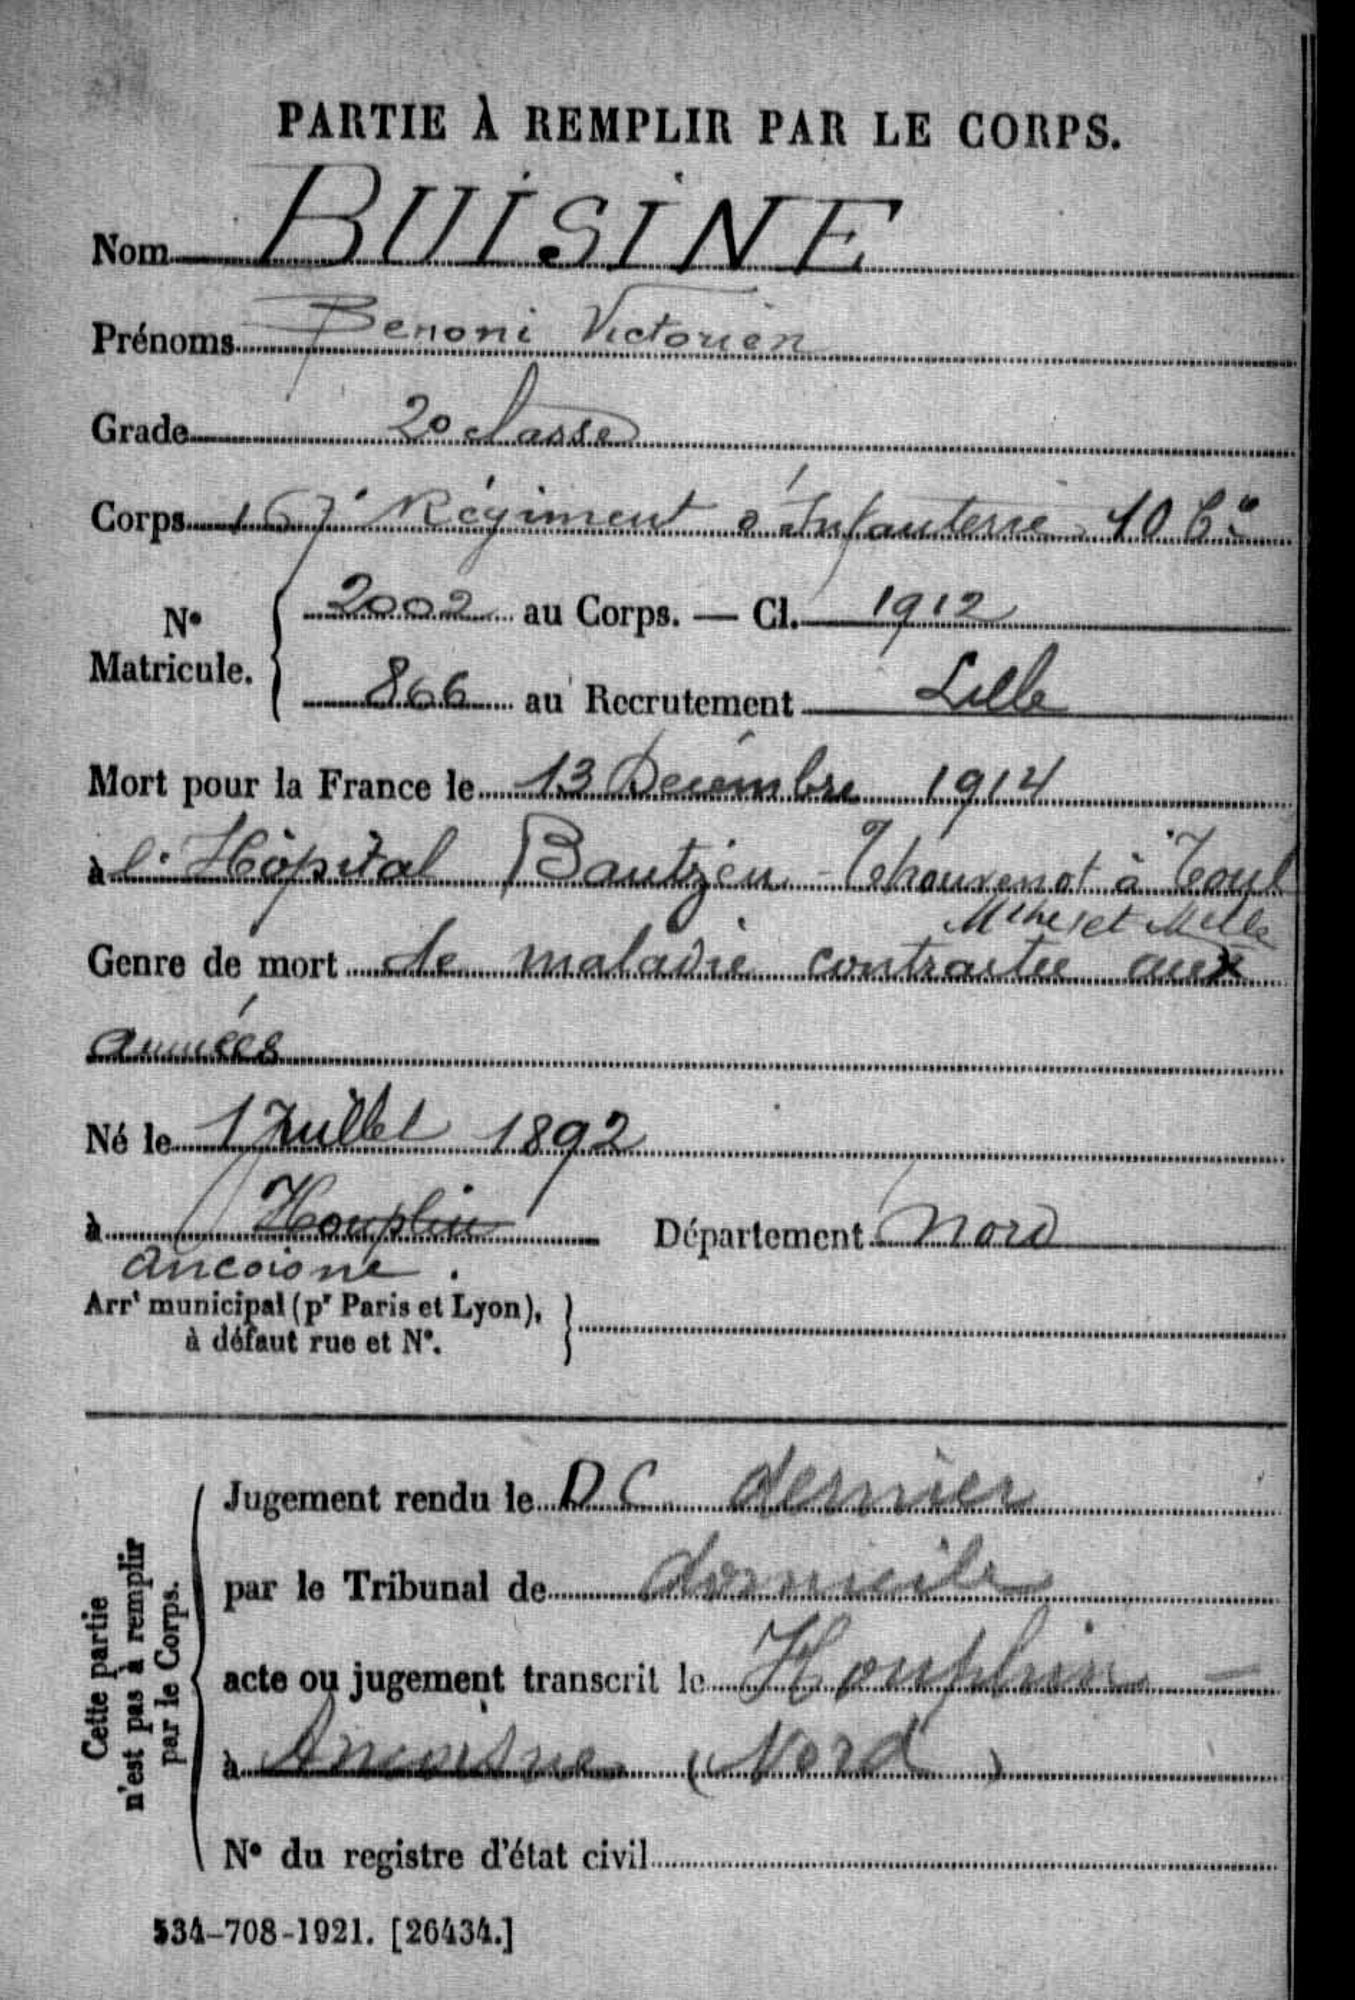 PARTIE À REMPLIR PAR LE CORPS.
Nom BUISINE
Prénoms Benoni Victorien
Grade 2e classe
Corps 167e Régiment d'Infanterie 10 Cie
No Matricule. { 2002 au Corps. — Cl. 1912
866 au Recrutement Lille
Mort pour la France le 13 Décembre 1914
à l'Hôpital Bautzen - Thouvenot à Toul
Mthe et Mlle
Genre de mort de maladie contractée aux
armées
Né le 1 Juillet 1892
à Houplin Département Nord
Ancoisne.
Arrt municipal (pr Paris et Lyon), }
à défaut rue et No.
Cette partie
n'est pas à remplir
par le Corps.
Jugement rendu le DC dernier
par le Tribunal de domicile
acte ou jugement transcrit le Houplin -
à Ancoisne (Nord)
No du registre d'état civil
534-708-1921. [26434.]